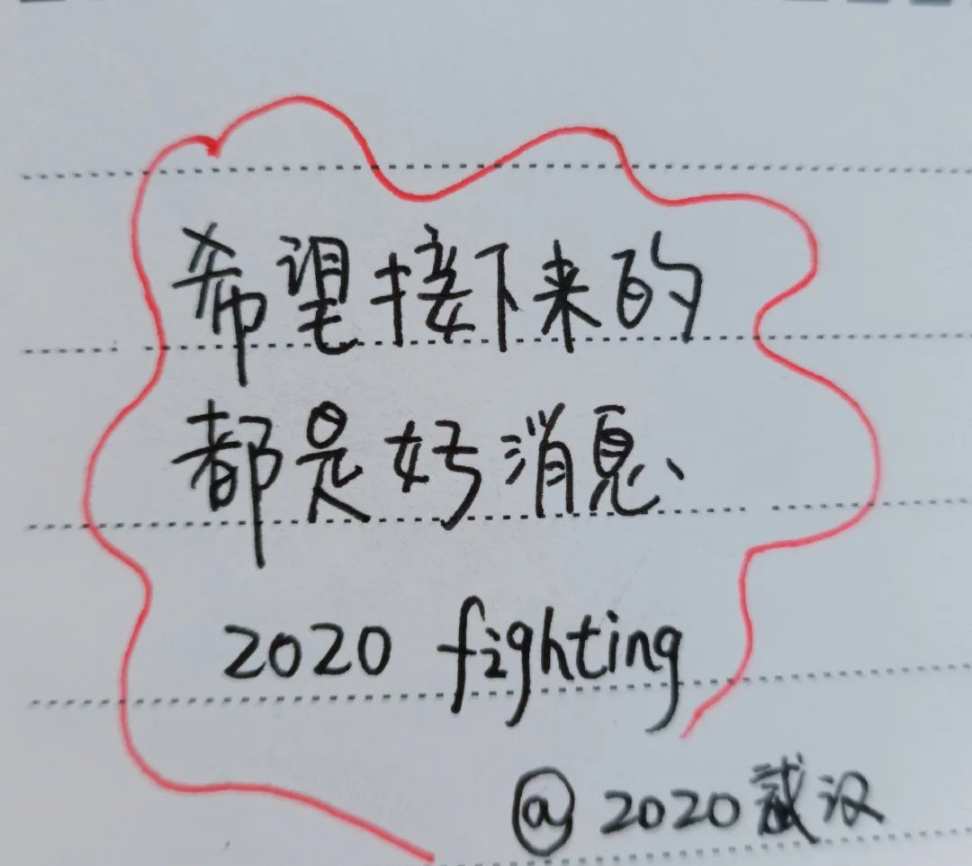 希望接下来的
都是好消息、
2020 fighting
@2020武汉